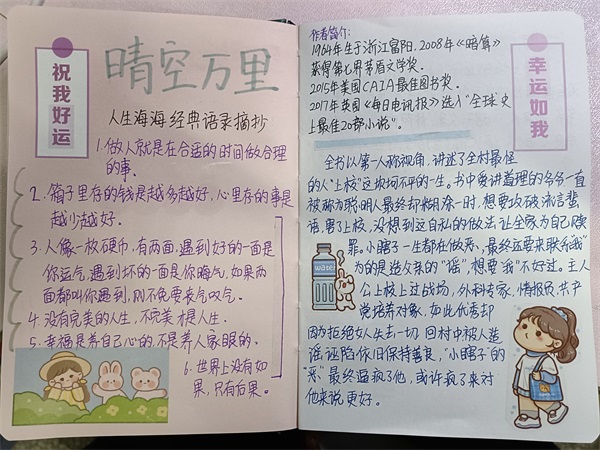 祝我好运
晴空万里
人生海海 经典语录摘抄
1.做人就是在合适的时间做合理
的事.
2.箱子里存的钱是越多越好,心里存的事是
越少越好.
3.人像一枚硬币,有两面,遇到好的一面是
你运气,遇到坏的一面是你晦气,如果两
面都叫你遇到,则不免要丧气叹气.
4.没有完美的人生,不完美才是人生.
5.幸福是养自己心的,不是养人家眼的.
6.世界上没有如
果,只有后果。
作者简介:
1964年生于浙江富阳,2008年《暗算》
获得第七界茅盾文学奖.
2015年美国CAIA最佳图书奖.
2017年英国《每日电讯报》选入“全球史
上最佳20部小说”.
幸运如我
全书以第一人称视角,讲述了全村最怪
的人“上校”这坎坷不平的一生。书中爱讲道理的爷爷一直
被称为聪明人最终却糊涂一时,想要攻破流言蜚
语,害了上校,没想到这自私的做法,让全家为自己赎
罪。小瞎子一生都在做恶,最终还要来联系“我”
为的是造父亲的“谣”,想要“我”不好过。主人
公上校上过战场,外科专家,情报员,共产
党培养对象,如此优秀却
因为拒绝女人失去一切,回村中被人造
谣诬陷依旧保持善良,“小瞎子的
“恶”最终逼疯了他,或许疯了来对
他来说更好。
water